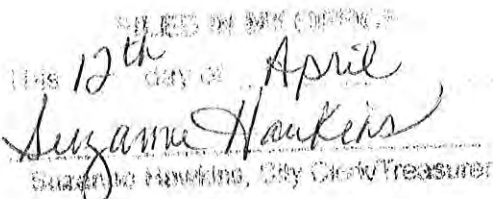 FILED IN MY OFFICE
This 12th day of April
Suzanne Hawkins
Suzanne Hawkins, City Clerk/Treasurer